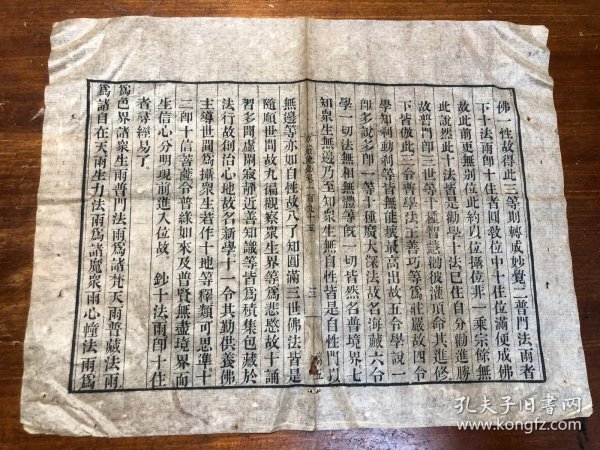 佛一性故得此三等則轉成妙覺二普門法雨者
下十法雨即十住者圓教位中十住位滿便成佛
故此前更無別位此約以位攝位非一乘宗條無
此說然此十法皆是勸學十法已住自分勸進勝
故普門即三世等十種智慧勸彼灌頂命其進修
下皆倣此三令普學法王善巧等為莊嚴故四令
學知剎動剎等皆無能壞最高出故五令學說一
即多說多即一等十種廣大深法故名海藏六令
學一切法無相無體等既一切皆然名普境界七
知眾生無邊乃至知眾生無自性皆是自性門以
三
無邊等亦如自性故八了知圓滿三世佛法皆是
隨順世間故九徧觀察眾生界等為悲愍故十誦
習多聞虛閑寂靜近善知識等皆為積集包藏於
法行故創治心地故名新學十一令其勤供養佛
主導世間為攝眾生若作十地等釋類可思準十
二即十信菩薩令普緣如來及普賢無盡境界而
生信心分明現前進入位故　鈔十法雨即十住
者尋經易了
為色界諸眾生雨普門法雨為諸梵天雨普藏法雨
為諸自在天雨生力法雨為諸魔眾雨心幢法雨為
孔夫子旧书网
www.kongfz.com